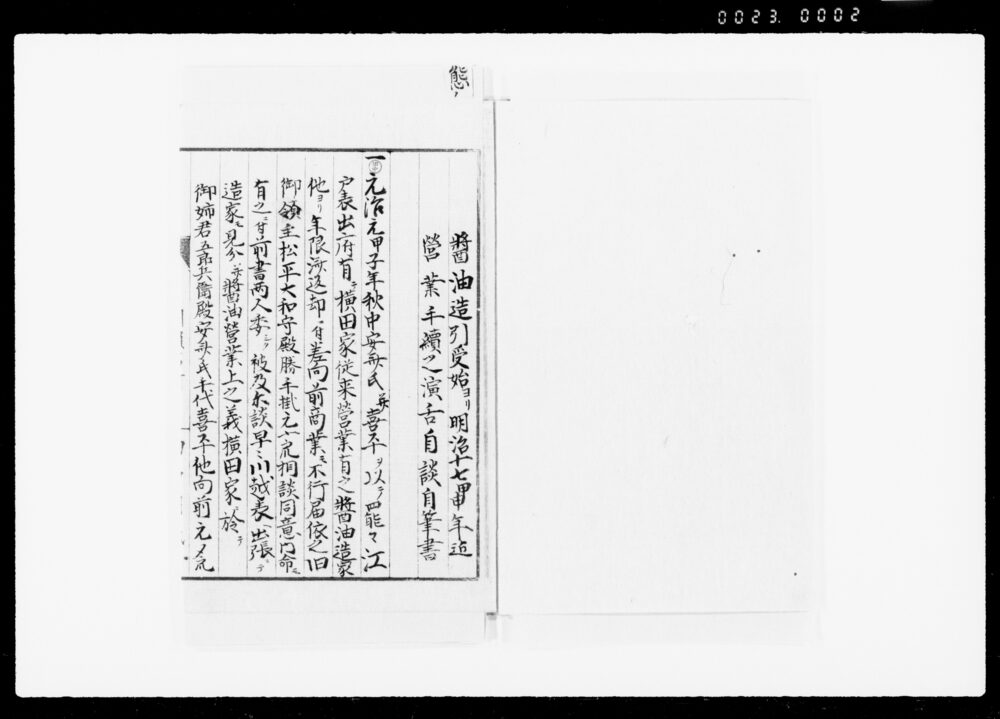 0023. 0002
態々
醬油造引受始ヨリ明治十七甲申年迄
營業手續之演舌自談自筆書
一元治元甲子年秋中安 氏并喜平ヲ以テ態々江
戸表出府有テ横田家従来營業有之醬油造家
他ヨリ年限 返却ニ付差向前商業ニ不行届依之旧
御領主松平大和守殿勝手掛元〆 相談同意内命ニ
有之ニ付前書両人委シク被及示談早々川越表ヘ出張シテ
造家ヲ見分并醬油營業上之義横田家ニ於テ
御姉君五郎兵衛殿安 氏千代喜平他向前元〆